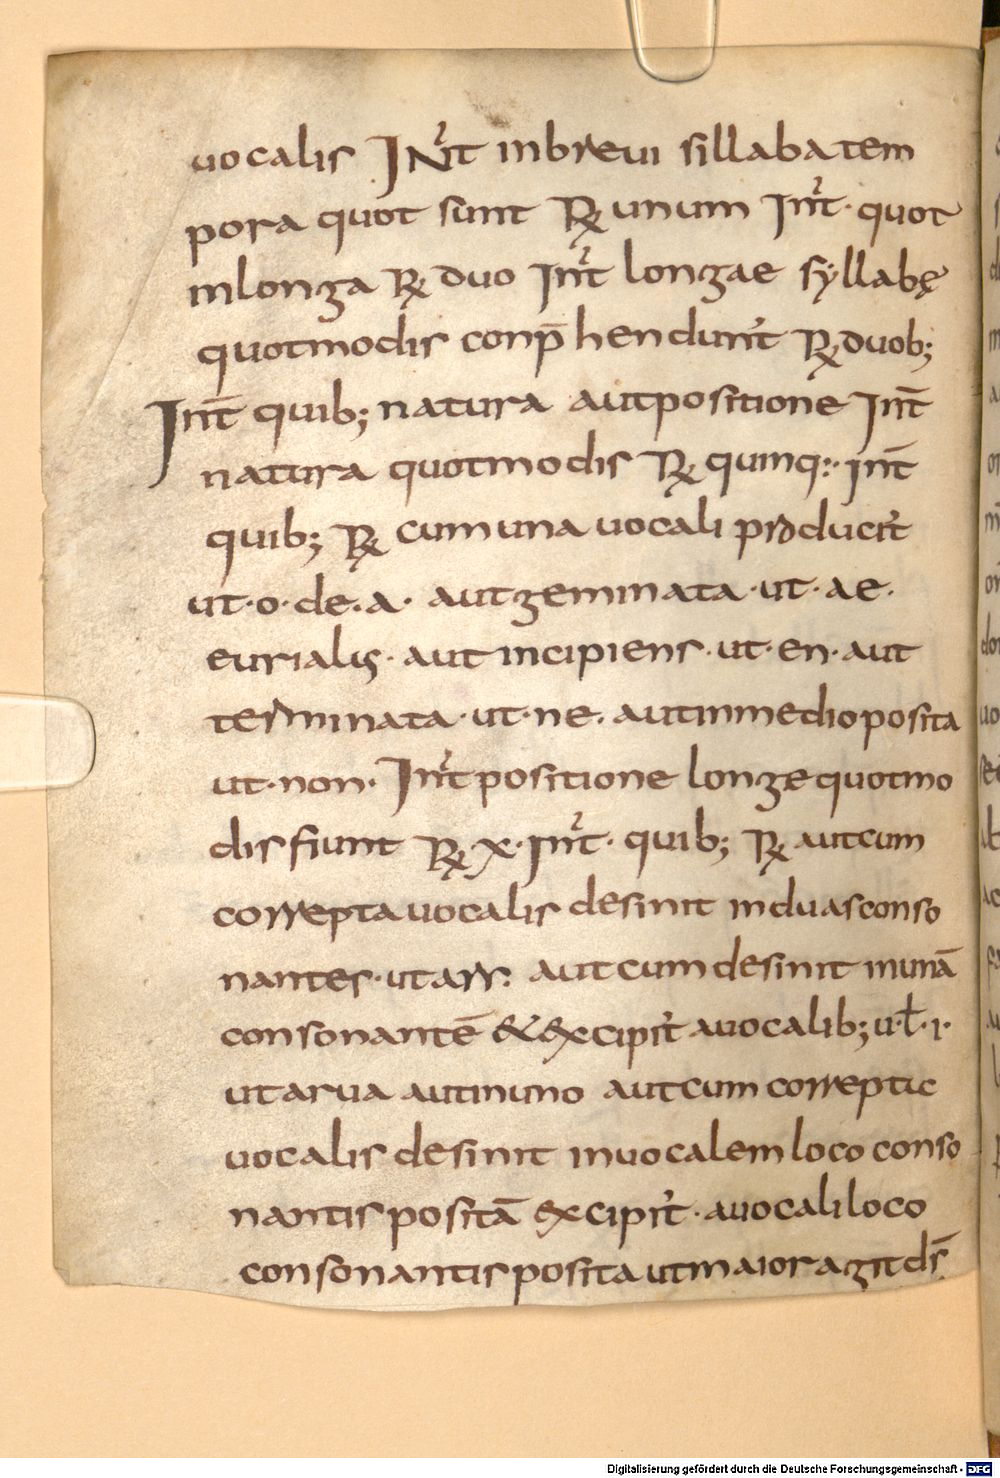 uocalis INT̉ inbreui sillaba tem
pora quot sunt R̷ unum Int̉· quot
inlonga R̷ duo Int̉ longae syllabę
quotmodis conp̄hendunt̉ R̷ duob;
Int̄ quib; natura autpositione Int̄
natura quotmodis R̷ quinq:· int̄
quib; R̷ cum una uocali producit̉
ut·o·de·a· autgeminata·ut·ae·
eurialis· aut incipiens·ut·en·aut
terminata·ut·ne· autinmedioposita
ut·non· Int̉ positione longe quotmo
dis fiunt R̷·x·Int̉· quib; R̷ autcum
correpta uocalis desinit induasconso
nantes·utars· autcumdesinit inunā
consonantē & excipit̉ auocalib;u·ł·i·
utarua autinuno autcum correptic
uocalis desinit inuocalem loco conso
nantis positā excipit̉·auocali loco
consonantis posita utmaior agit ds̄
Digitalisierung gefördert durch die Deutsche Forschungsgemeinschaft - DFG